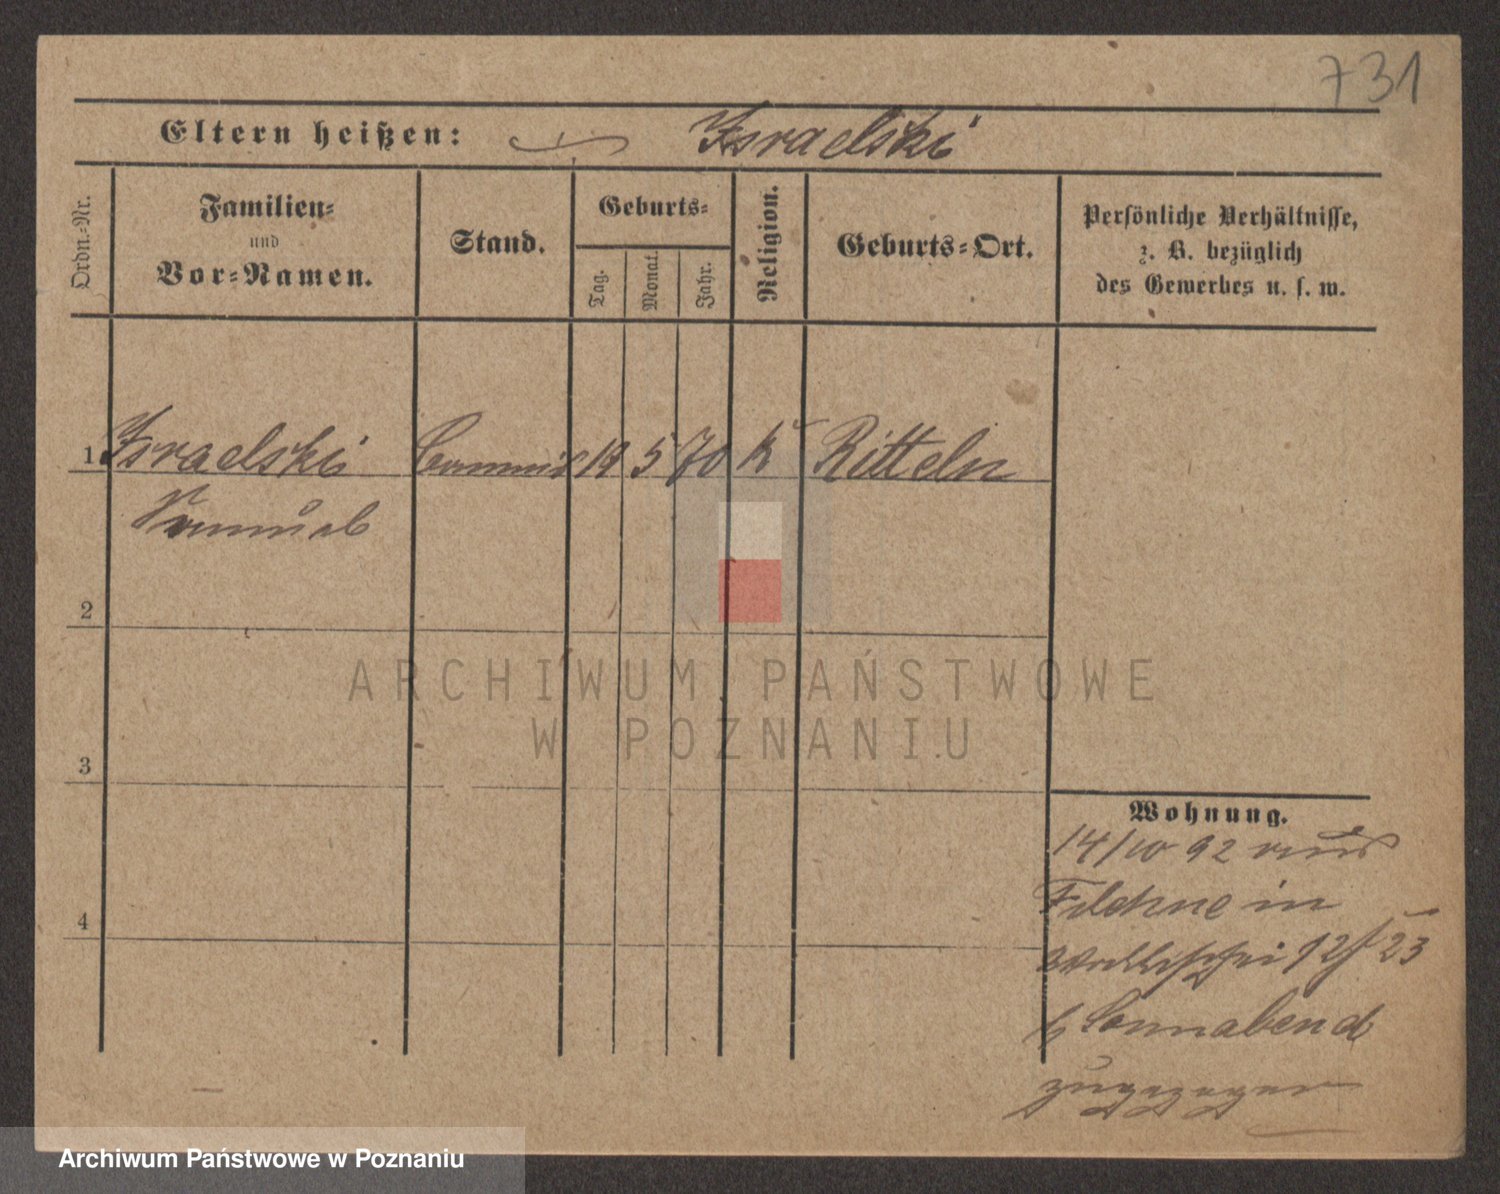 731
Eltern heißen: Israelski
Ordn.-Nr.
Familien-
und
Vor-Namen.
Stand.
Geburts-
Tag.
Monat.
Jahr.
Religion.
Geburts-Ort.
Persönliche Verhältnisse,
z. B. bezüglich
des Gewerbes u. s. w.
1 Israelski Commis 19 5 70 k Ritteln
2
3
4
Wohnung.
14/10 92 aus
Filehne in
Wallischei 12/23
b Sonnabend
zugezogen
ARCHIWUM PAŃSTWOWE
W POZNANIU
Archiwum Państwowe w Poznaniu